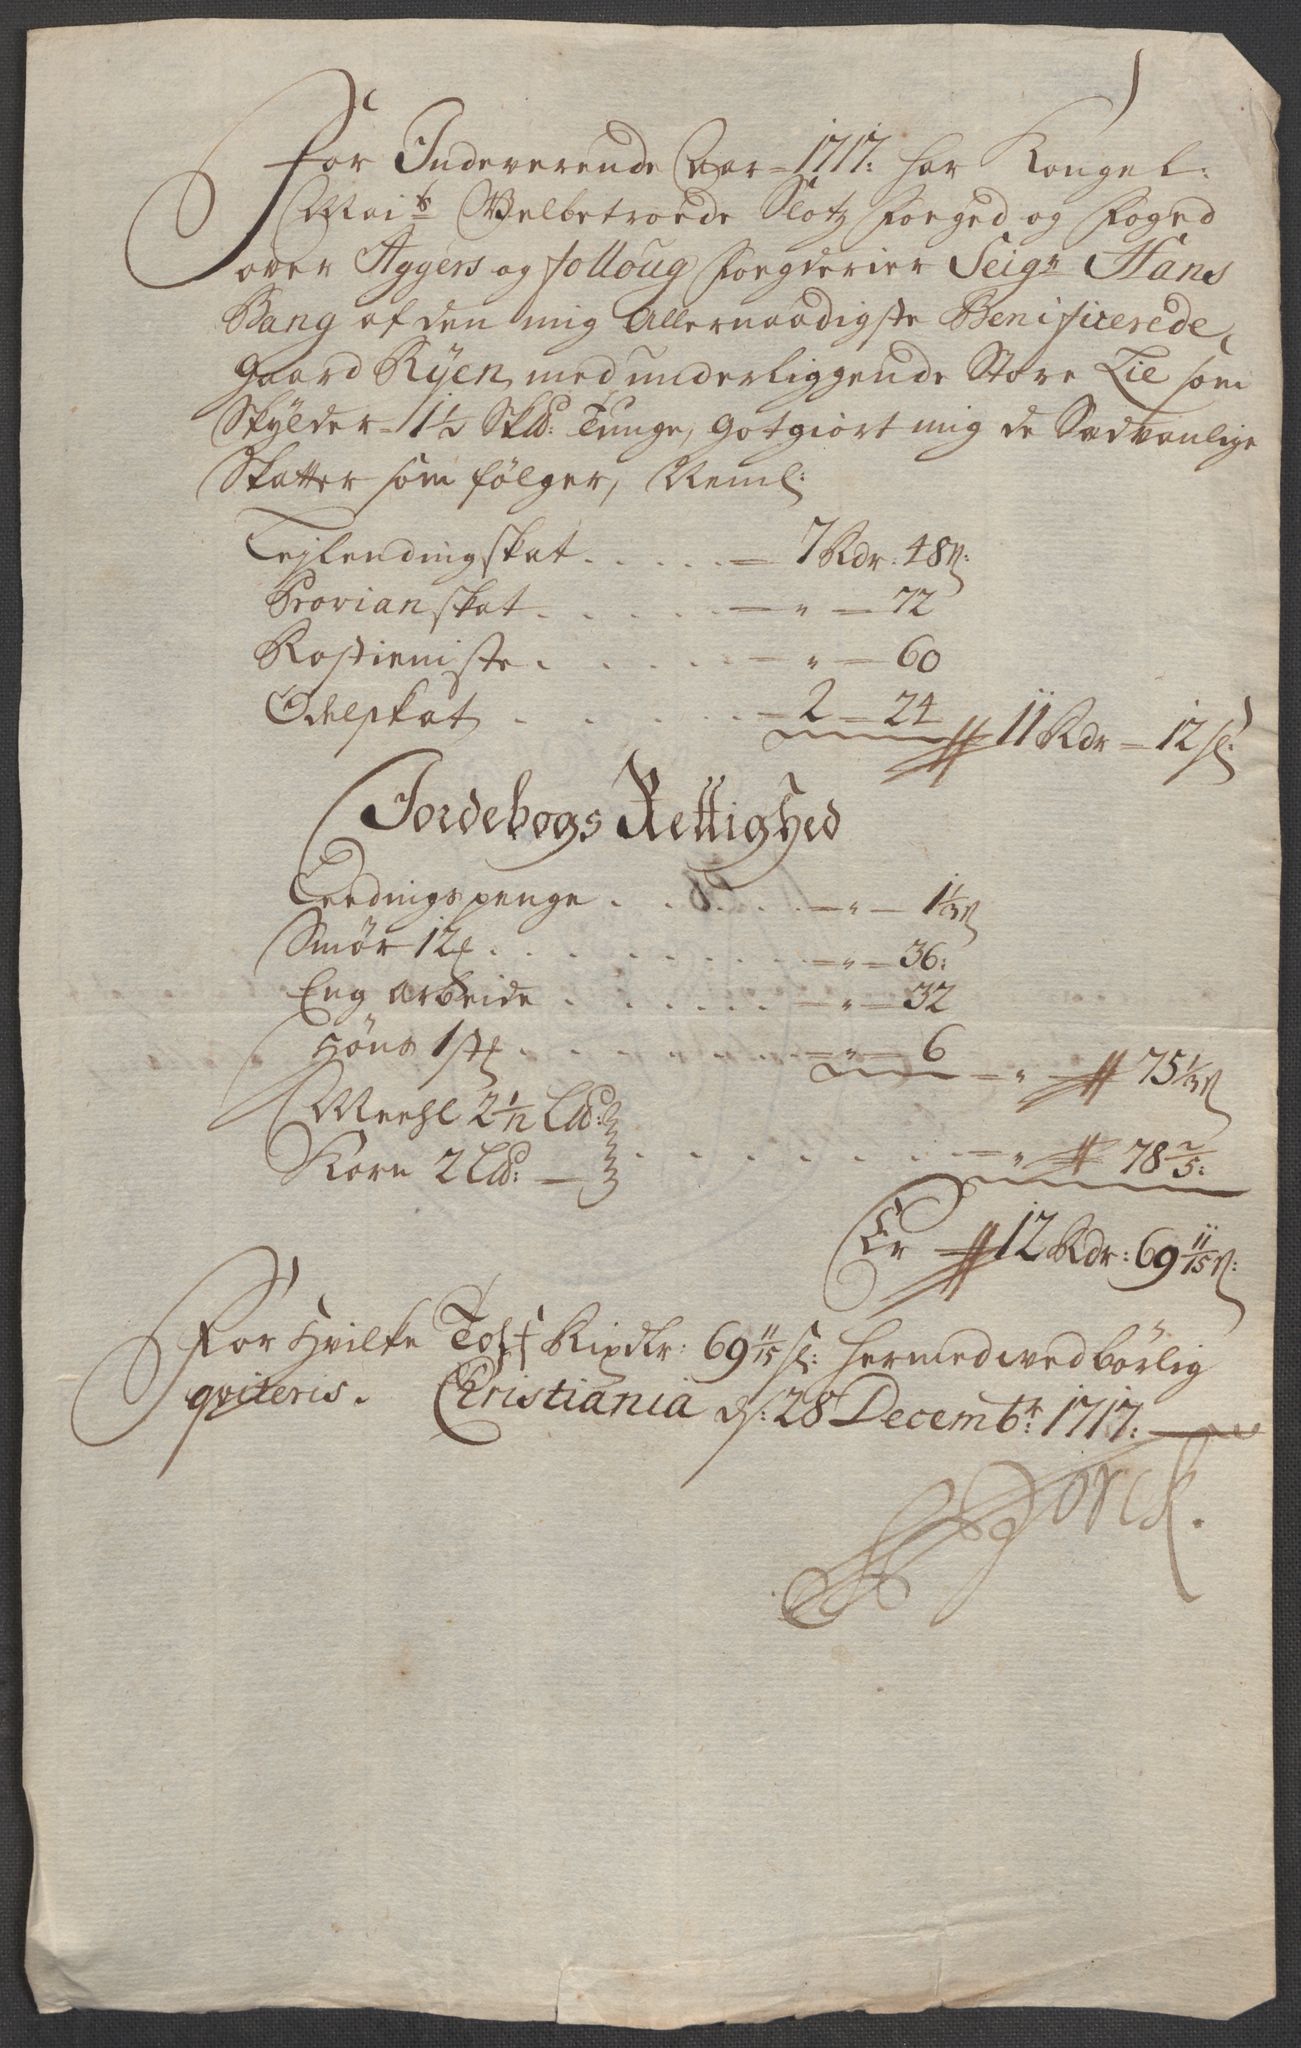 For Indeverende Aar 1717: har Kongel:
Maits Velbetroede Slotz Foeged og Foged
over Aggers og folloug Foegderier Seigr Hans
Bang af den mig Allernaadigste Benificerede
gaard Ryen, med underliggende Store Lie som
Skylder 1½ Sk℔: Tunge, gotgiort mig de Sædvanlige
Skatter som følger, Neml:
Lejlendingskat . . . . . 7 Rdr: 48 ß:
Provianskat . . . . „ 72
Rostieniste . . . . „ 60
Odelskat . . . . 2 — 24 11 Rdr — 12 ß:
Jordebogs Rettighed
Leedingspenge . . . . „ 1⅓ ß
Smør 12 . . . . „ 36:
Eng Arbeide . . . . „ 32
Høns 1 st . . . . „ 6 „ 75⅓ ß
Meehl 2½ L℔:
Korn 2 L℔: . . . . „ 78 2/5:
Er 12 Rdr: 69 11/15 ß:
For hvilke Tolf Rixdlr: 69 11/15 ß: hermed vedbørlig
qviteris. Christiania ds: 28 Decembr: 1717: